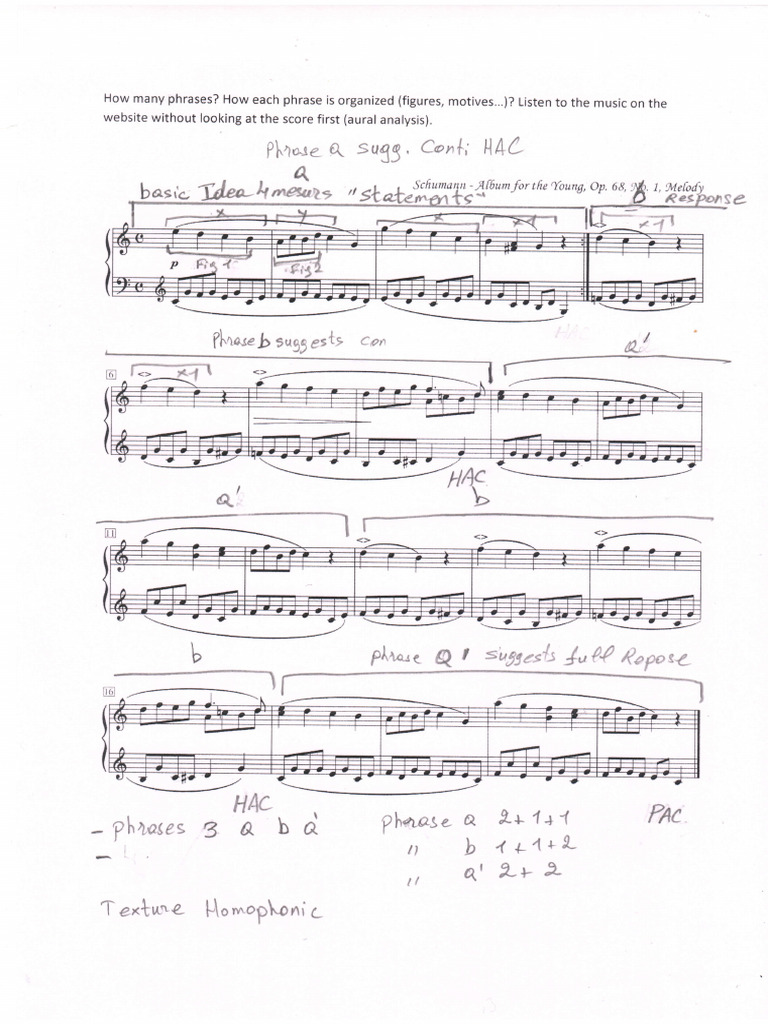 How many phrases? How each phrase is organized (figures, motives...)? Listen to the music on the
website without looking at the score first (aural analysis).
Phrase a sugg. Conti HAC
a
Schumann - Album for the Young, Op. 68, No. 1, Melody
basic Idea 4 mesurs "Statements" b Response
x y x x1 x1
p Fig 1 Fig 2
HAC
Phrase b suggests con a'
6 x1
HAC
a' b
11
b phrase a' suggests full Repose
16
HAC
- phrases 3 a b a' Pherase a 2+1+1 PAC
- " b 1+1+2
" a' 2+2
Texture Homophonic